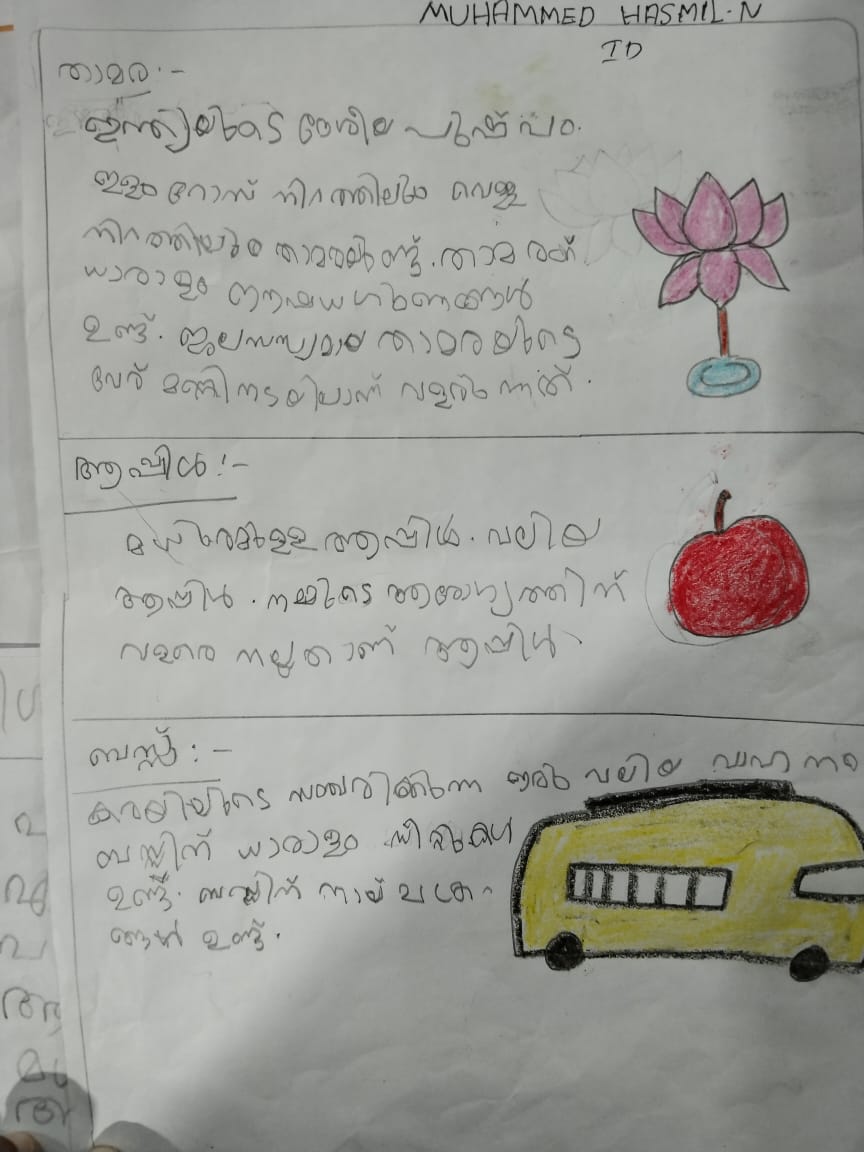 MUHAMMED HASMIL.N
ID
താമര :-
ഇന്ത്യയുടെ ദേശീയ പുഷ്പം.
ഇളം റോസ് നിറത്തിലും വെള്ള
നിറത്തിലും താമരയുണ്ട്. താമരക്ക്
ധാരാളം ഔഷധഗുണങ്ങൾ
ഉണ്ട്. ജലസസ്യമായ താമരയുടെ
വേര് മണ്ണിനടയിലാണ് വളരുന്നത്.
ആപ്പിൾ :-
മധുരമുള്ള ആപ്പിൾ. വലിയ
ആപ്പിൾ. നമ്മുടെ ആരോഗ്യത്തിന്
വളരെ നല്ലതാണ് ആപ്പിൾ
ബസ്സ് :-
കരയിലൂടെ സഞ്ചരിക്കുന്ന ഒരു വലിയ വാഹനം
ബസ്സിന് ധാരാളം സീറ്റുകൾ
ഉണ്ട്. ബസ്സിന് നാല് ചക്ര
ങ്ങൾ ഉണ്ട്.